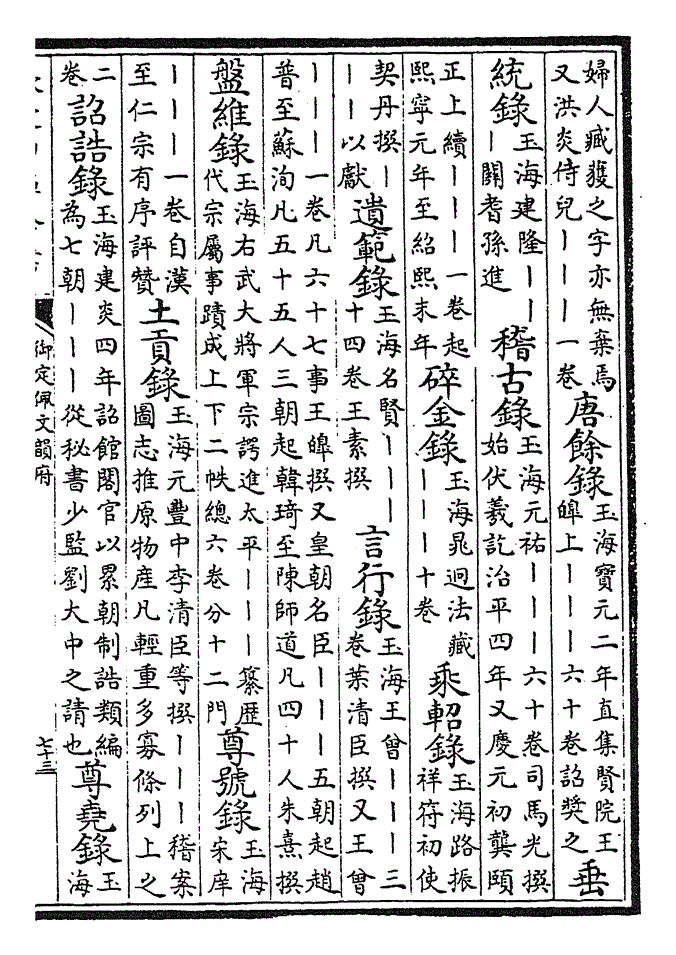 婦人臧獲之字亦無棄焉
又洪炎侍兒｜｜｜一卷
唐餘錄
玉海寶元二年直集賢院王
皥上｜｜｜六十卷詔奨之
垂
統錄
玉海建隆｜｜
｜關耆孫進
稽古錄
玉海元祐｜｜｜六十卷司馬光撰
始伏羲訖治平四年又慶元初龔頤
正上續｜｜｜一卷起
熙寧元年至紹熙末年
碎金錄
玉海晁迥法藏
｜｜｜十卷
乘軺錄
玉海路振
祥符初使
契丹撰｜
｜｜以獻
遺範錄
玉海名賢｜｜｜
十四卷王素撰
言行錄
玉海王曾｜｜｜三
卷葉清臣撰又王曾
｜｜｜｜一卷凡六十七事王皥撰又皇朝名臣｜｜｜五朝起趙
普至蘇洵凡五十五人三朝起韓琦至陳師道凡四十人朱熹撰
盤維錄
玉海右武大將軍宗諤進太平｜｜｜纂歷
代宗屬事蹟成上下二帙總六卷分十二門
尊號錄
玉海
宋庠
｜｜｜｜一卷自漢
至仁宗有序評贊
土貢錄
玉海元豐中李清臣等撰｜｜｜稽案
圖志推原物産凡輕重多寡條列上之
二
卷
詔誥錄
玉海建炎四年詔館閣官以累朝制誥類編
為七朝｜｜｜從秘書少監劉大中之請也
尊堯錄
玉
海
御定佩文韻府
七十三